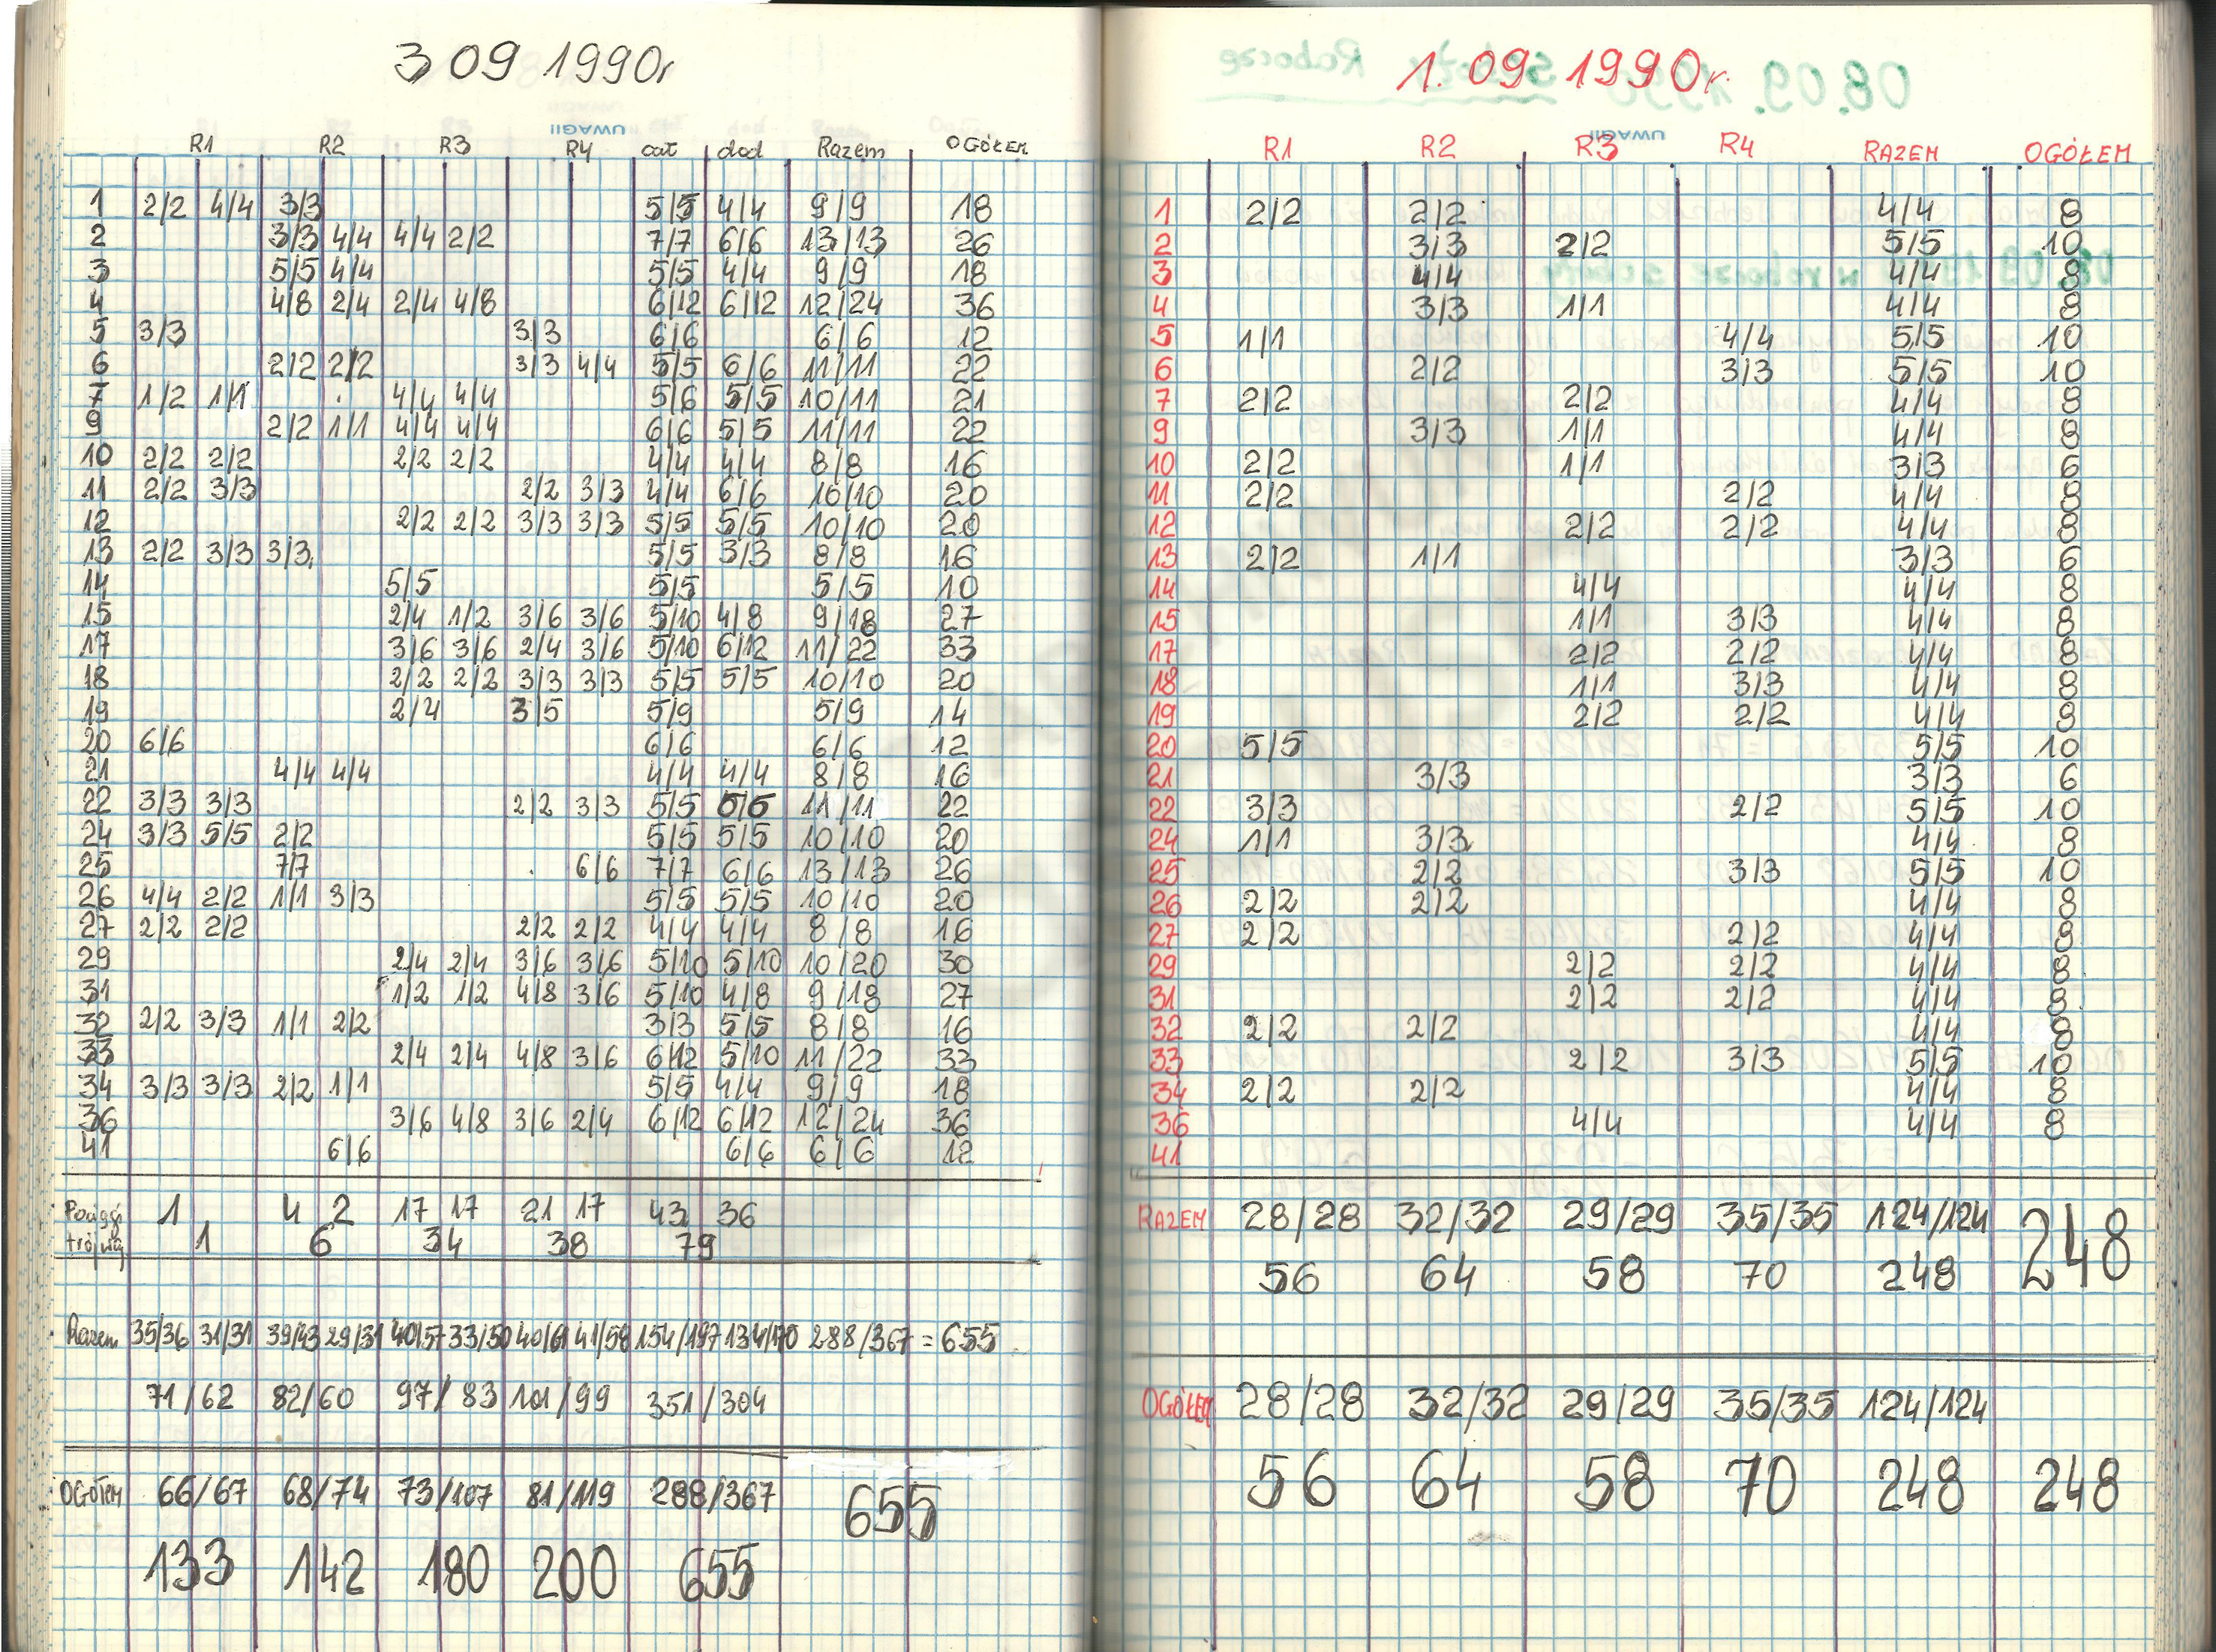 3 09 1990r
UWAGI!
R1 R2 R3 R4 cał dod Razem OGÓŁEM
1 2/2 4/4 3/3 5/5 4/4 9/9 18
2 3/3 4/4 4/4 2/2 7/7 6/6 13/13 26
3 5/5 4/4 5/5 4/4 9/9 18
4 4/8 2/4 2/4 4/8 6/12 6/12 12/24 36
5 3/3 3/3 6/6 6/6 12
6 2/2 2/2 3/3 4/4 5/5 6/6 11/11 22
7 1/2 1/1 4/4 4/4 5/6 5/5 10/11 21
9 2/2 1/1 4/4 4/4 6/6 5/5 11/11 22
10 2/2 2/2 2/2 2/2 4/4 4/4 8/8 16
11 2/2 3/3 2/2 3/3 4/4 6/6 10/10 20
12 2/2 2/2 3/3 3/3 5/5 5/5 10/10 20
13 2/2 3/3 3/3 5/5 3/3 8/8 16
14 5/5 5/5 5/5 10
15 2/4 1/2 3/6 3/6 5/10 4/8 9/18 27
17 3/6 3/6 2/4 3/6 5/10 6/12 11/22 33
18 2/2 2/2 3/3 3/3 5/5 5/5 10/10 20
19 2/4 3/5 5/9 5/9 14
20 6/6 6/6 6/6 12
21 4/4 4/4 4/4 4/4 8/8 16
22 3/3 3/3 2/2 3/3 5/5 6/6 11/11 22
24 3/3 5/5 2/2 5/5 5/5 10/10 20
25 7/7 6/6 7/7 6/6 13/13 26
26 4/4 2/2 1/1 3/3 5/5 5/5 10/10 20
27 2/2 2/2 2/2 2/2 4/4 4/4 8/8 16
29 2/4 2/4 3/6 3/6 5/10 5/10 10/20 30
31 1/2 1/2 4/8 3/6 5/10 4/8 9/18 27
32 2/2 3/3 1/1 2/2 3/3 5/5 8/8 16
33 2/4 2/4 4/8 3/6 6/12 5/10 11/22 33
34 3/3 3/3 2/2 1/1 5/5 4/4 9/9 18
36 3/6 4/8 3/6 2/4 6/12 6/12 12/24 36
41 6/6 6/6 6/6 12
1 4 2 17 17 21 17 43 36
1 6 34 38 79
Razem 35/36 31/31 39/43 29/31 40/57 33/50 40/61 41/58 154/197 134/170 288/367 = 655
71/62 82/60 97/83 101/99 351/304
OGÓŁEM 66/67 68/74 73/107 81/119 288/367 655
133 142 180 200 655
1. 09 1990r.
UWAGI!
R1 R2 R3 R4 RAZEM OGÓŁEM
1 2/2 2/2 4/4 8
2 3/3 2/2 5/5 10
3 4/4 4/4 8
4 3/3 1/1 4/4 8
5 1/1 4/4 5/5 10
6 2/2 3/3 5/5 10
7 2/2 2/2 4/4 8
9 3/3 1/1 4/4 8
10 2/2 1/1 3/3 6
11 2/2 2/2 4/4 8
12 2/2 2/2 4/4 8
13 2/2 1/1 3/3 6
14 4/4 4/4 8
15 1/1 3/3 4/4 8
17 2/2 2/2 4/4 8
18 1/1 3/3 4/4 8
19 2/2 2/2 4/4 8
20 5/5 5/5 10
21 3/3 3/3 6
22 3/3 2/2 5/5 10
24 1/1 3/3 4/4 8
25 2/2 3/3 5/5 10
26 2/2 2/2 4/4 8
27 2/2 2/2 4/4 8
29 2/2 2/2 4/4 8
31 2/2 2/2 4/4 8
32 2/2 2/2 4/4 8
33 2/2 3/3 5/5 10
34 2/2 2/2 4/4 8
36 4/4 4/4 8
41
RAZEM 28/28 32/32 29/29 35/35 124/124 248
56 64 58 70 248
OGÓŁEM 28/28 32/32 29/29 35/35 124/124
56 64 58 70 248 248